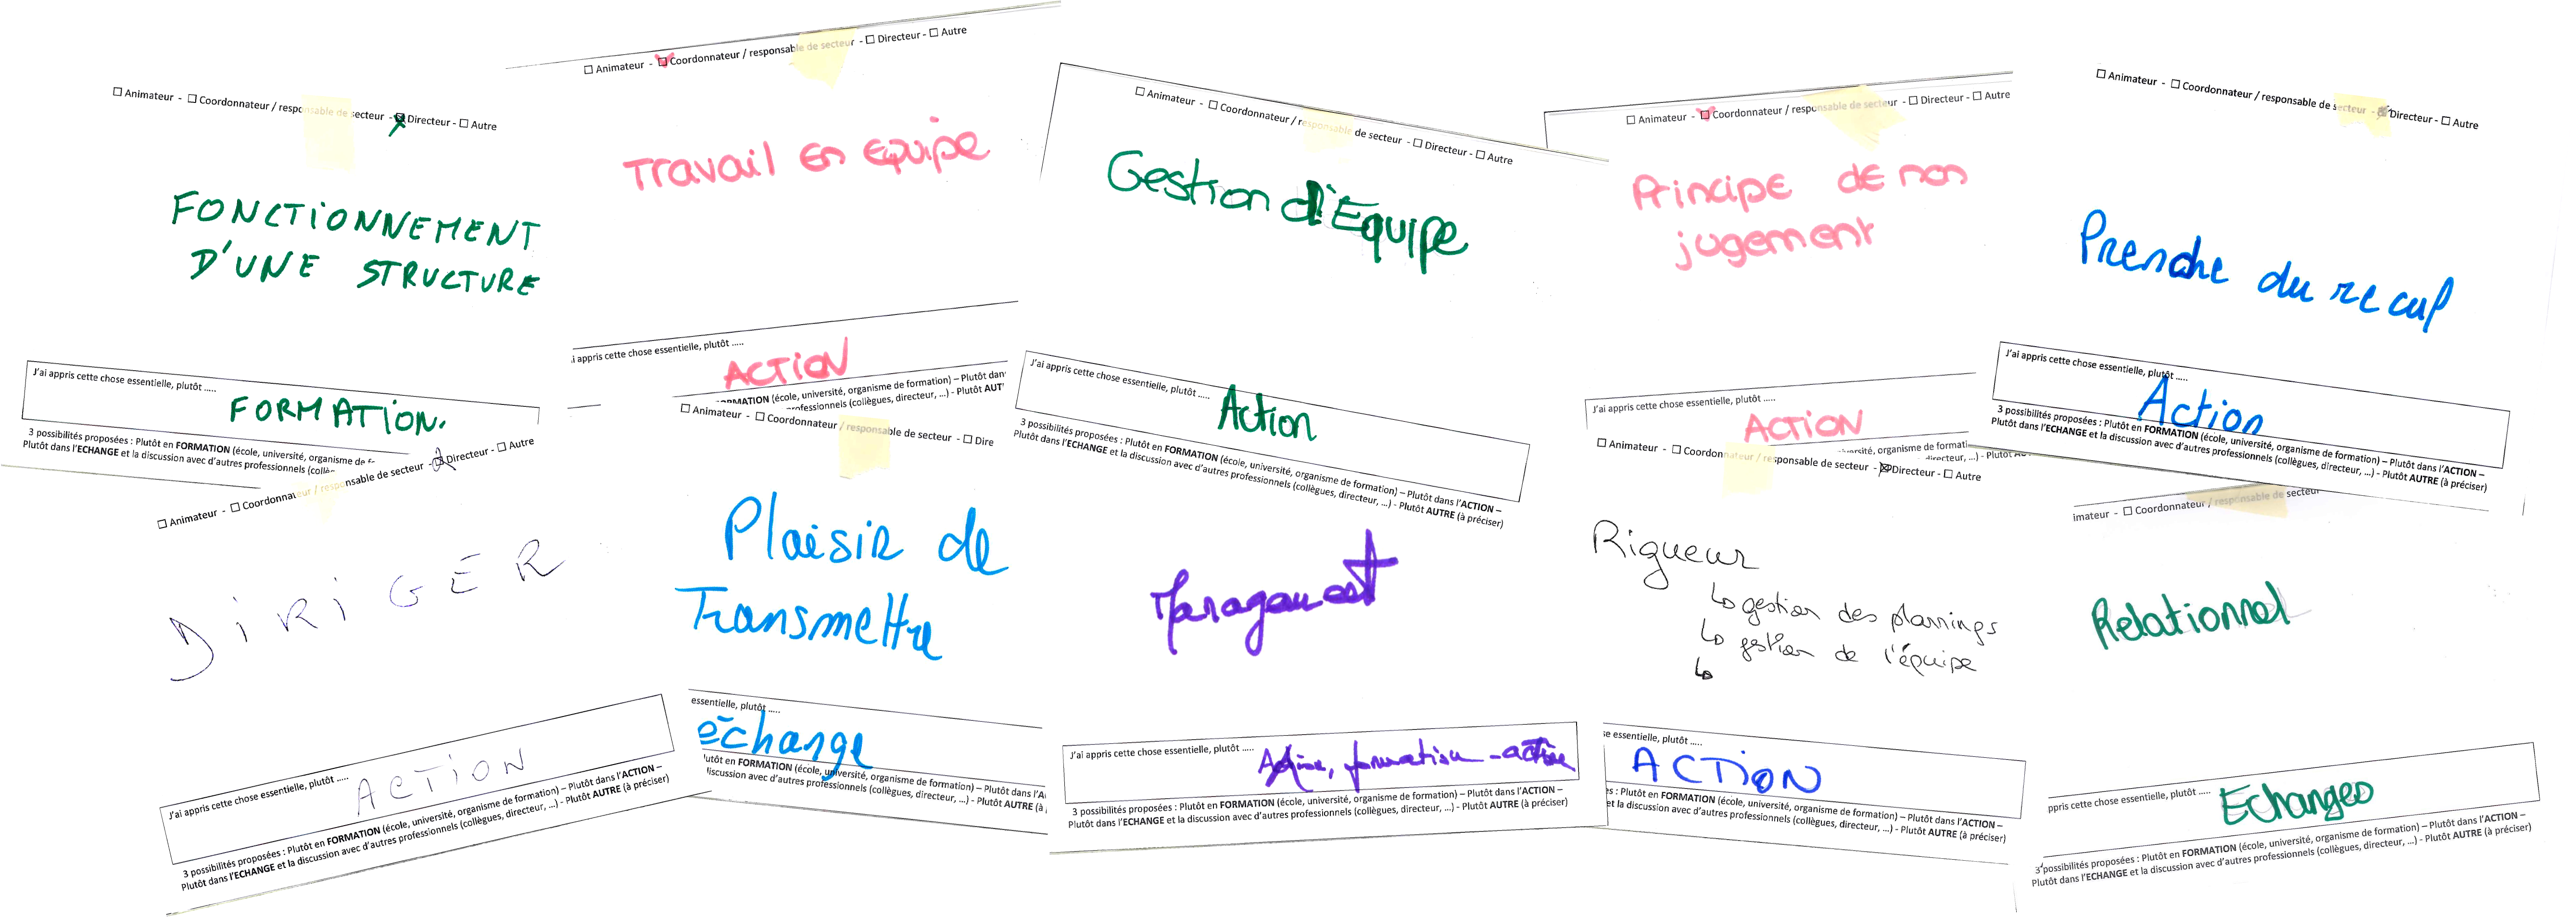 ☐ Animateur - ☐ Coordonnateur / responsable de secteur - ☒ Directeur - ☐ Autre
FONCTIONNEMENT
D'UNE STRUCTURE
J'ai appris cette chose essentielle, plutôt .....
FORMATION.
3 possibilités proposées : Plutôt en FORMATION (école, université, organisme de
Plutôt dans l'ECHANGE et la discussion avec d'autres professionnels
☐ Animateur - ☒ Coordonnateur / responsable de secteur - ☐ Directeur - ☐ Autre
Travail En Equipe
i appris cette chose essentielle, plutôt .....
ACTION
FORMATION (école, université, organisme de formation) – Plutôt dan
professionnels (collègues, directeur, ...) - Plutôt AUT
☐ Animateur - ☐ Coordonnateur / responsable de secteur - ☐ Directeur - ☐ Autre
Gestion d'Equipe
J'ai appris cette chose essentielle, plutôt .....
Action
3 possibilités proposées : Plutôt en FORMATION (école, université, organisme de formation) – Plutôt dans l'ACTION –
Plutôt dans l'ECHANGE et la discussion avec d'autres professionnels (collègues, directeur, ...) - Plutôt AUTRE (à préciser)
☐ Animateur - ☒ Coordonnateur / responsable de secteur - ☐ Directeur - ☐ Autre
Principe de non
jugement
J'ai appris cette chose essentielle, plutôt .....
ACTION
université, organisme de formati
directeur, ...) - Plutôt
☐ Animateur - ☐ Coordonnateur / responsable de secteur - ☒ Directeur - ☐ Autre
Prendre du recul
J'ai appris cette chose essentielle, plutôt .....
Action
3 possibilités proposées : Plutôt en FORMATION (école, université, organisme de formation) – Plutôt dans l'ACTION –
Plutôt dans l'ECHANGE et la discussion avec d'autres professionnels (collègues, directeur, ...) - Plutôt AUTRE (à préciser)
☐ Animateur - ☐ Coordonnateur / responsable de secteur - ☒ Directeur - ☐ Autre
DIRIGER
J'ai appris cette chose essentielle, plutôt .....
ACTION
3 possibilités proposées : Plutôt en FORMATION (école, université, organisme de formation) – Plutôt dans l'ACTION –
Plutôt dans l'ECHANGE et la discussion avec d'autres professionnels (collègues, directeur, ...) - Plutôt AUTRE (à préciser)
☐ Animateur - ☐ Coordonnateur / responsable de secteur - ☐ Dire
Plaisir de
Transmettre
essentielle, plutôt .....
échange
lutôt en FORMATION (école, université, organisme de formation) – Plutôt dans l'A
discussion avec d'autres professionnels (collègues, directeur, ...) - Plutôt AUTRE (à
Management
J'ai appris cette chose essentielle, plutôt .....
Action, formation-action
3 possibilités proposées : Plutôt en FORMATION (école, université, organisme de formation) – Plutôt dans l'ACTION –
Plutôt dans l'ECHANGE et la discussion avec d'autres professionnels (collègues, directeur, ...) - Plutôt AUTRE (à préciser)
☐ Animateur - ☐ Coordonnateur / responsable de secteur - ☒ Directeur - ☐ Autre
Rigueur
↳ gestion des plannings
↳ gestion de l'équipe
↳
se essentielle, plutôt .....
ACTION
es : Plutôt en FORMATION (école, université, organisme de formation) – Plutôt dans l'ACTION –
et la discussion avec d'autres professionnels (collègues, directeur, ...) - Plutôt AUTRE (à préciser)
imateur - ☐ Coordonnateur / responsable de secteur
Relationnel
ppris cette chose essentielle, plutôt .....
Echanges
3 possibilités proposées : Plutôt en FORMATION (école, université, organisme de formation) – Plutôt dans l'ACTION –
Plutôt dans l'ECHANGE et la discussion avec d'autres professionnels (collègues, directeur, ...) - Plutôt AUTRE (à préciser)